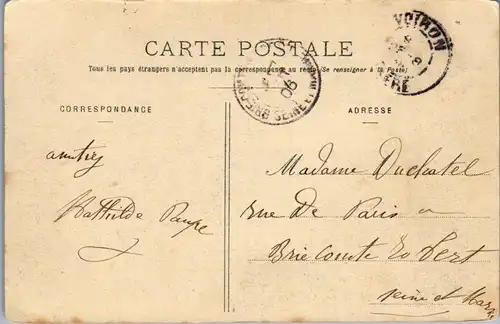 CARTE POSTALE
Tous les pays étrangers n'acceptent pas la correspondance au recto (Se renseigner à la Poste)
CORRESPONDANCE
ADRESSE
VOIRON
06
SEINE ET
amitiés
Bathilde
Madame Duchatel
rue De Paris
Brie Comte Robert
Seine et Marne